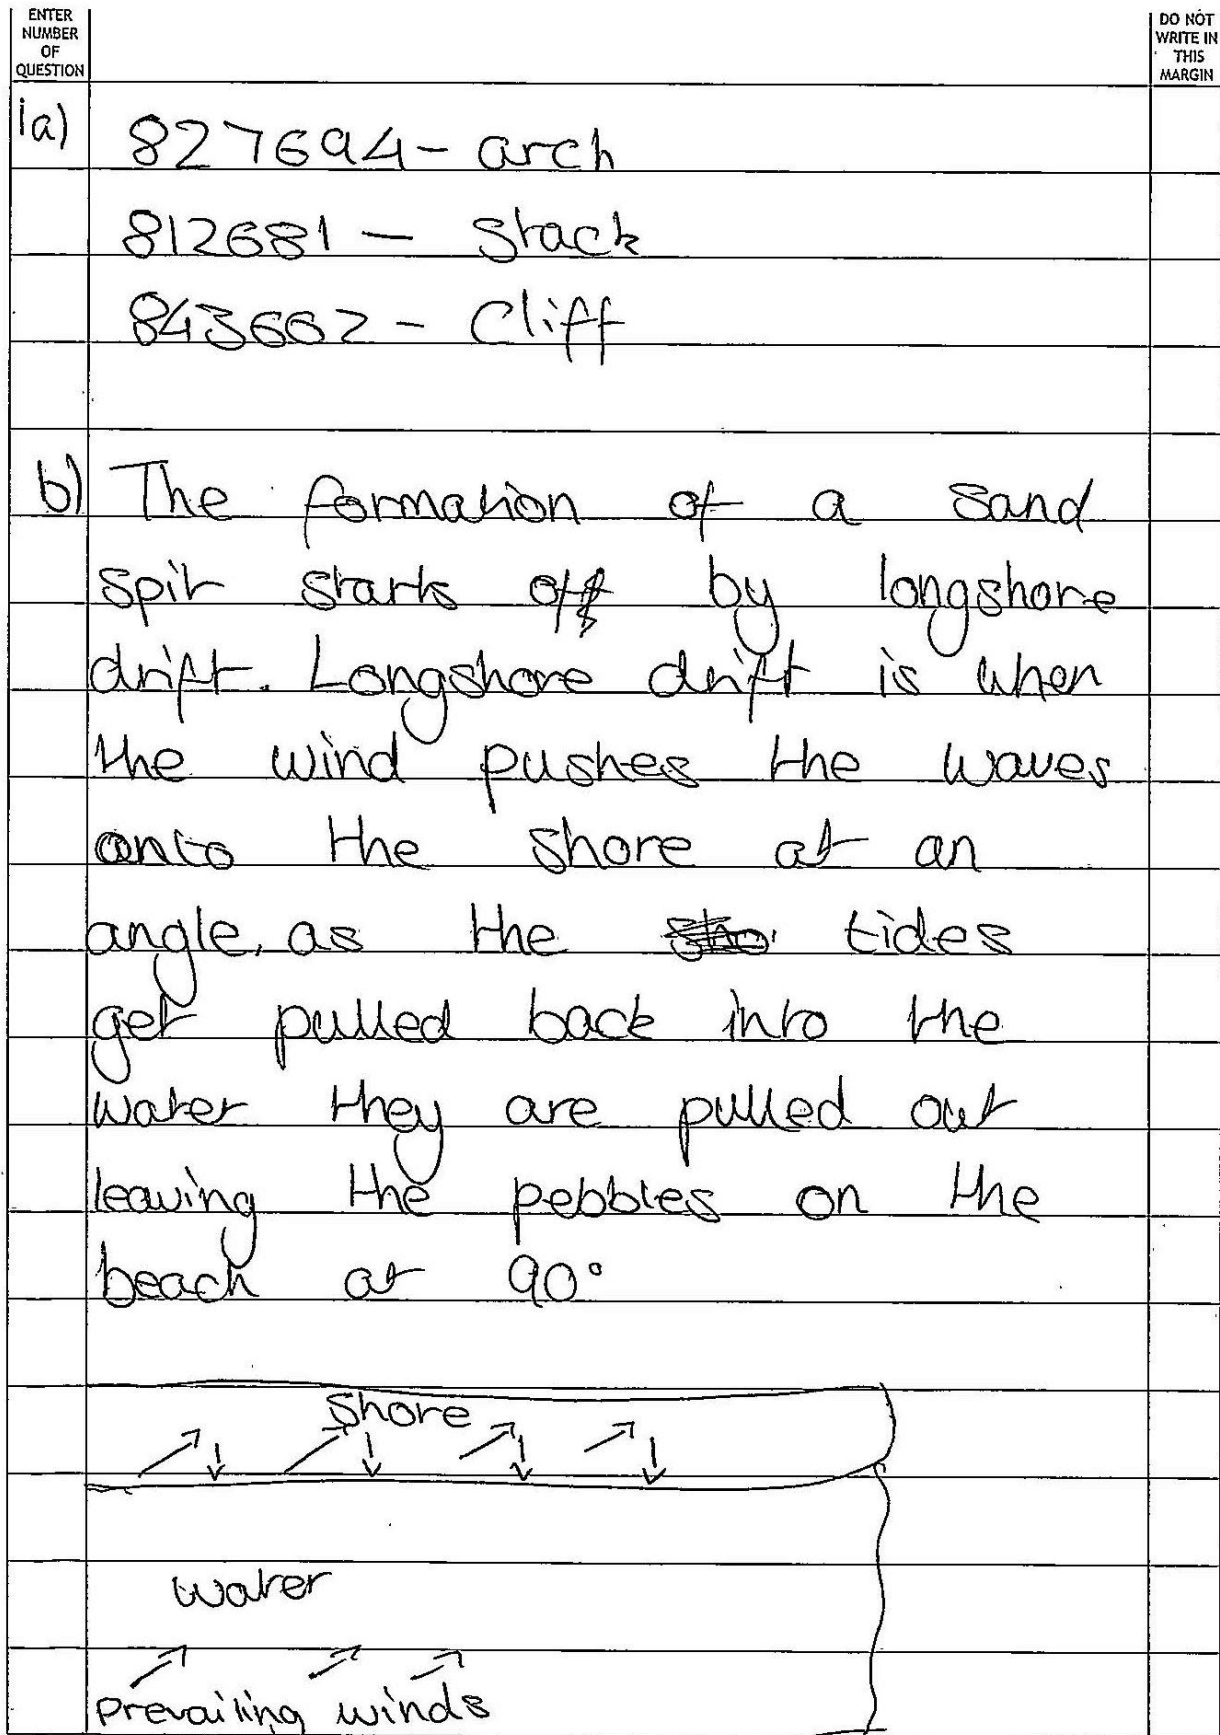 ENTER
NUMBER
OF
QUESTION
DO NOT
WRITE IN
THIS
MARGIN
1a)
827694 - arch
812681 - Stack
843662 - Cliff
b) The formation of a sand
spit starts off by longshore
drift. Longshore drift is when
the wind pushes the waves
onto the shore at an
angle, as the tides
get pulled back into the
water they are pulled out
leaving the pebbles on the
beach at 90°
Shore
water
Prevailing winds